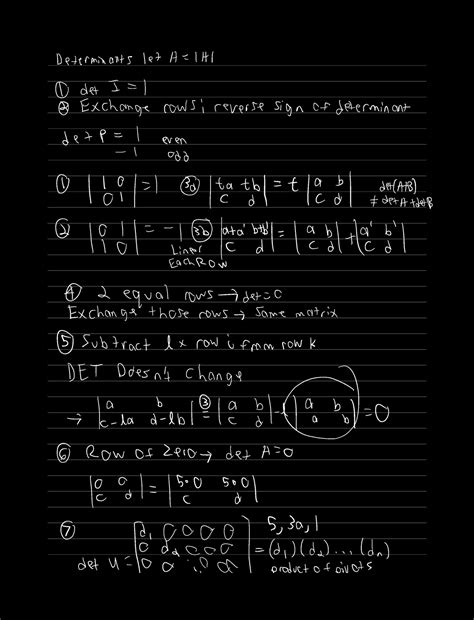 Determinants let A = |A|
① det I = 1
② Exchange rows; reverse sign of determinant
det P = 1 even
-1 odd
① |1 0| = 1 ③a |ta tb| = t |a b| det(A+B)
|0 1| |c d| |c d| ≠ det A + det B
② |0 1| = -1 ③b |a+a' b+b'| = |a b| + |a' b'|
|1 0| |c d| |c d| |c d|
Linear
Each Row
④ 2 equal rows → det = 0
Exchange those rows → Same matrix
⑤ Subtract l x row i from row k
DET Doesn't Change
→ |a b| ③= |a b| - |a b| = 0
|c-la d-lb| |c d| |a b|
⑥ Row of Zero → det A = 0
|0 0| = |5·0 5·0|
|c d| |c d|
⑦ 5, 3a, 1
|d₁ 0 0 0 0|
|0 d₂ 0 0 0| = (d₁)(d₂) ... (dₙ)
det U = product of pivots